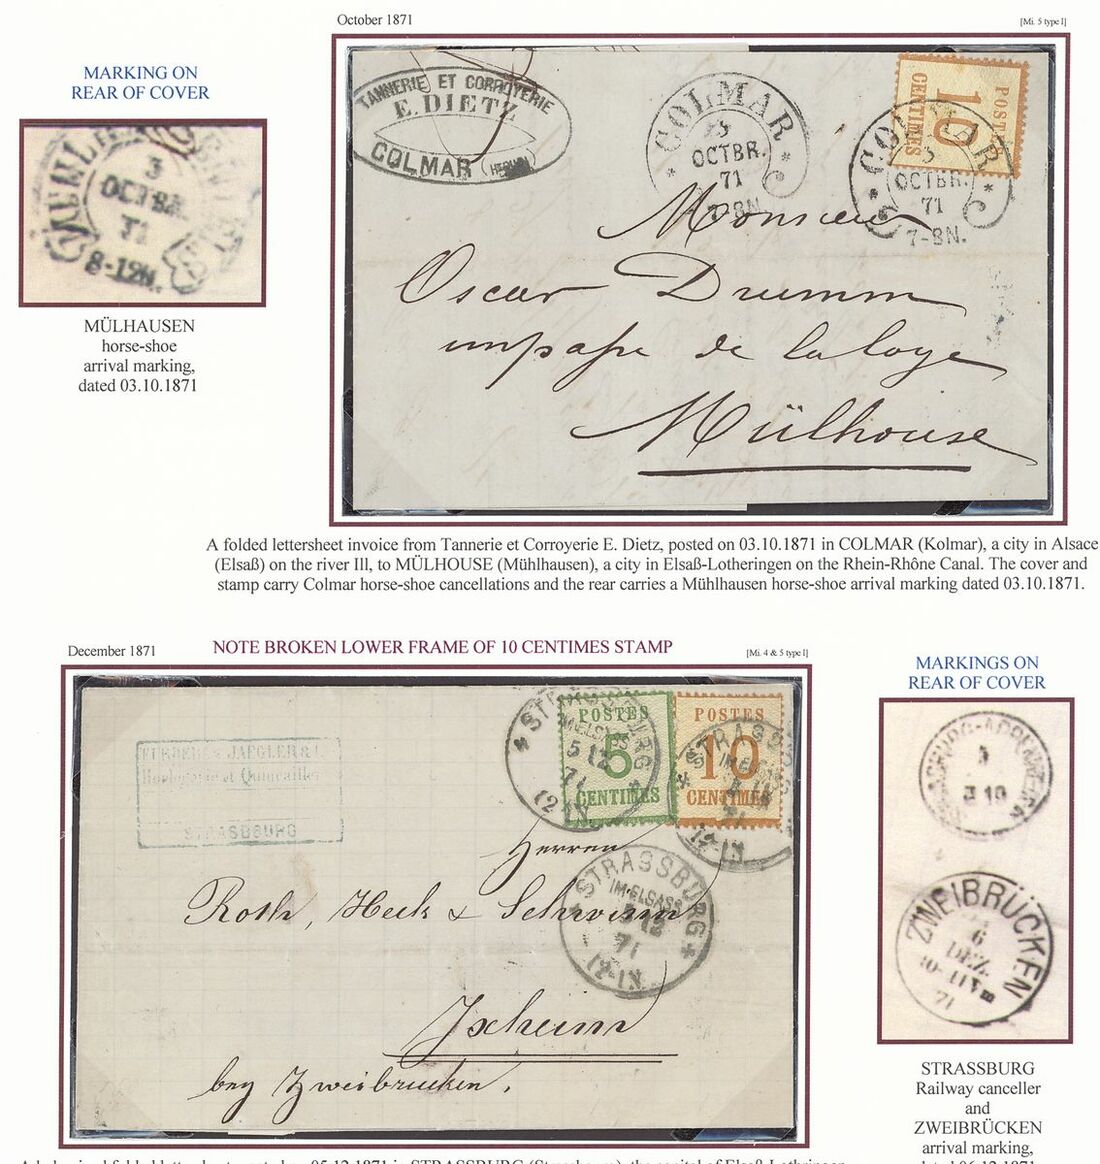 October 1871
[Mi. 5 type I]
MARKING ON
REAR OF COVER
3
OCTBR.
71
8-12N.
MÜLHAUSEN
horse-shoe
arrival marking,
dated 03.10.1871
TANNERIE ET CORROYERIE
E. DIETZ
COLMAR
COLMAR
3
OCTBR.
71
7-8N.
POSTES
10
CENTIMES
COLMAR
3
OCTBR.
71
7-8N.
Monsieur
Oscar Drumm
impasse de la loge
Mülhouse
A folded lettersheet invoice from Tannerie et Corroyerie E. Dietz, posted on 03.10.1871 in COLMAR (Kolmar), a city in Alsace
(Elsaß) on the river Ill, to MÜLHOUSE (Mühlhausen), a city in Elsaß-Lotheringen on the Rhein-Rhône Canal. The cover and
stamp carry Colmar horse-shoe cancellations and the rear carries a Mühlhausen horse-shoe arrival marking dated 03.10.1871.
December 1871
NOTE BROKEN LOWER FRAME OF 10 CENTIMES STAMP
[Mi. 4 & 5 type I]
JAEGLER &
et Quincailler
STRASBOURG
STRASSBURG
IM ELSASS
5 12
71
12-1N
POSTES
5
CENTIMES
POSTES
10
CENTIMES
STRASSBURG
IM ELSASS
71
12-1N
Herren
Roth, Heck & Schwinn
STRASSBURG
IM ELSASS
5 12
71
12-1N
Ixheim
bey Zweibrücken.
MARKINGS ON
REAR OF COVER
ZWEIBRÜCKEN
6
DEZ.
10-11Vm
71
STRASSBURG
Railway canceller
and
ZWEIBRÜCKEN
arrival marking,